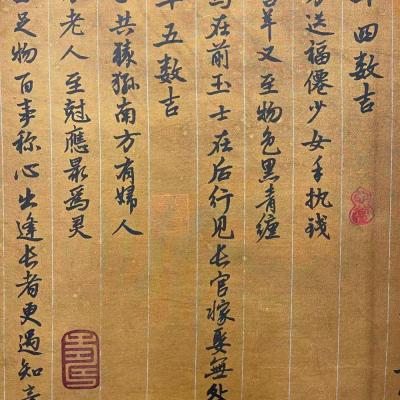 四数吉
送福僊少女手执钱
又至物色黑青缠
在前玉士在后行见长官嫁娶無处
五数吉
共猿狐南方有婦人
老人至尅應最為灵
足物百事称心出逢长者更遇知音